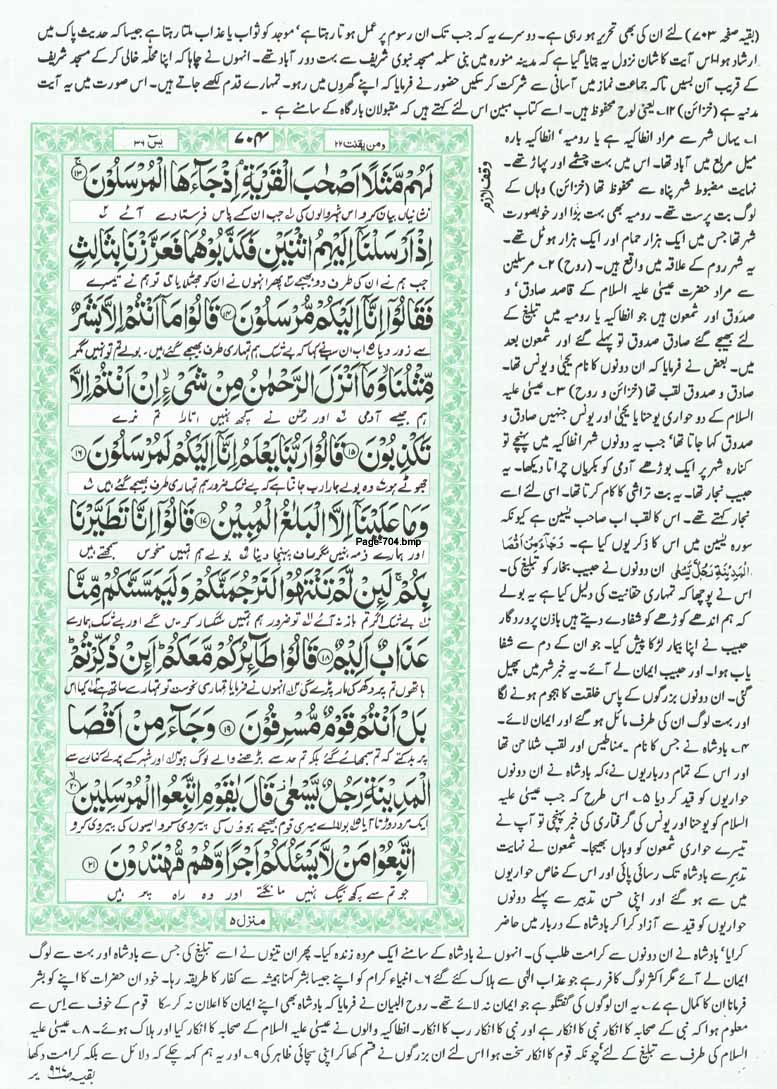 (بقیہ صفحہ ۷۰۳) لئے ان کی بھی تحریر ہو رہی ہے۔ دوسرے یہ کہ جب تک ان رسوم پر عمل ہوتا رہتا ہے' موجد کو ثواب یا عذاب ملتا رہتا ہے جیسا کہ حدیث پاک میں
ارشاد ہوا۔ اس آیت کا شان نزول یہ بتایا گیا ہے کہ مدینہ منورہ میں بنی سلمہ مسجد نبوی شریف سے بہت دور آباد تھے۔ انہوں نے چاہا کہ اپنا محلّہ خالی کر کے مسجد شریف
کے قریب آن بسیں تاکہ جماعت نماز میں آسانی سے شرکت کر سکیں حضور نے فرمایا کہ اپنے گھروں میں رہو۔ تمہارے قدم لکھے جاتے ہیں۔ اس صورت میں یہ آیت
مدنیہ ہے (خزائن) ۱۲۔ یعنی لوح محفوظ ہیں۔ اسے کتاب مبین اس لئے کہتے ہیں کہ مقبولان بارگاہ کے سامنے ہے۔
ومن یقنت ۲۲
۷۰۴
یٰسٓ ۳۶
لَهُمْ مَّثَلًا اَصْحٰبَ الْقَرْيَةِ اِذْ جَآءَهَا الْمُرْسَلُوْنَ ۱۳
نشانیاں بیان کرو اس شہر والوں کی جب ان کے پاس فرستادے آئے
اِذْ اَرْسَلْنَآ اِلَيْهِمُ اثْنَيْنِ فَكَذَّبُوْهُمَا فَعَزَّزْنَا بِثَالِثٍ
جب ہم نے ان کی طرف دو بھیجے پھر انہوں نے ان کو جھٹلایا تو ہم نے تیسرے
فَقَالُوْٓا اِنَّآ اِلَيْكُمْ مُّرْسَلُوْنَ ۱۴ قَالُوْا مَآ اَنْتُمْ اِلَّا بَشَرٌ
سے زور دیا اب ان سب نے کہا کہ بے شک ہم تمہاری طرف بھیجے گئے ہیں۔ بولے تم تو نہیں مگر
مِّثْلُنَا وَمَآ اَنْزَلَ الرَّحْمٰنُ مِنْ شَيْءٍ اِنْ اَنْتُمْ اِلَّا
ہم جیسے آدمی اور رحمٰن نے کچھ نہیں اتارا تم نرے
تَكْذِبُوْنَ ۱۵ قَالُوْا رَبُّنَا يَعْلَمُ اِنَّآ اِلَيْكُمْ لَمُرْسَلُوْنَ ۱۶
جھوٹے ہو وہ بولے ہمارا رب جانتا ہے کہ بے شک ضرور ہم تمہاری طرف بھیجے گئے ہیں
وَمَا عَلَيْنَآ اِلَّا الْبَلٰغُ الْمُبِيْنُ ۱۷ قَالُوْٓا اِنَّا تَطَيَّرْنَا
Page-704.bmp
اور ہمارے ذمہ نہیں مگر صاف پہنچا دینا بولے ہم تمہیں منحوس سمجھتے ہیں
بِكُمْ لَئِنْ لَّمْ تَنْتَهُوْا لَنَرْجُمَنَّكُمْ وَلَيَمَسَّنَّكُمْ مِّنَّا
بے شک اگر تم باز نہ آئے تو ضرور ہم تمہیں سنگسار کریں گے اور بے شک ہمارے
عَذَابٌ اَلِيْمٌ ۱۸ قَالُوْا طَآئِرُكُمْ مَّعَكُمْ اَئِنْ ذُكِّرْتُمْ
ہاتھوں تم پر دکھ کی مار پڑے گی انہوں نے فرمایا تمہاری نحوست تو تمہارے ساتھ ہے کیا اس
بَلْ اَنْتُمْ قَوْمٌ مُّسْرِفُوْنَ ۱۹ وَجَآءَ مِنْ اَقْصَا
پر بدکتے ہو کہ تم سمجھائے گئے بلکہ تم حد سے بڑھنے والے لوگ ہو اور شہر کے پرلے کنارے سے
الْمَدِيْنَةِ رَجُلٌ يَّسْعٰى قَالَ يٰقَوْمِ اتَّبِعُوا الْمُرْسَلِيْنَ ۲۰
ایک مرد دوڑتا آیا بولا اے میری قوم بھیجے ہوؤں کی پیروی کرو ایسوں کی پیروی کرو
اتَّبِعُوْا مَنْ لَّا يَسْئَلُكُمْ اَجْرًا وَّهُمْ مُّهْتَدُوْنَ ۲۱
جو تم سے کچھ نیگ نہیں مانگتے اور وہ راہ پر ہیں
منزل ۵
وقف لازم
۱۔ یہاں شہر سے مراد انطاکیہ ہے یا رومیہ' انطاکیہ بارہ
میل مربع میں آباد تھا۔ اس میں بہت چشمے اور پہاڑ تھے۔
نہایت مضبوط شہر پناہ سے محفوظ تھا (خزائن) وہاں کے
لوگ بت پرست تھے۔ رومیہ بھی بہت بڑا اور خوبصورت
شہر تھا جس میں ایک ہزار حمام اور ایک ہزار ہوٹل تھے۔
یہ شہر روم کے علاقہ میں واقع ہیں۔ (روح) ۲۔ مرسلین
سے مراد حضرت عیسیٰ علیہ السلام کے قاصد صادق' و
صدوق اور شمعون ہیں جو انطاکیہ یا رومیہ میں تبلیغ کے
لئے بھیجے گئے صادق صدوق تو پہلے گئے اور شمعون بعد
میں۔ بعض نے فرمایا کہ ان دونوں کا نام یحییٰ و یونس تھا۔
صادق و صدوق لقب تھا (خزائن و روح) ۳۔ عیسیٰ علیہ
السلام کے دو حواری یوحنا یا یحییٰ اور یونس جنہیں صادق و
صدوق کہا جاتا تھا' جب یہ دونوں شہر انطاکیہ میں پہنچے تو
کنارہ شہر پر ایک بوڑھے آدمی کو بکریاں چراتا دیکھا۔ یہ
حبیب نجار تھا۔ یہ بت تراشی کا کام کرتا تھا۔ اسی لئے اسے
نجار کہتے تھے۔ اس کا لقب اب صاحب یٰسین ہے کیونکہ
سورہ یٰسین میں اس کا ذکر یوں کیا ہے۔ وَجَآءَ مِنْ اَقْصَا
الْمَدِيْنَةِ رَجُلٌ يَّسْعٰى ان دونوں نے حبیب نجار کو تبلیغ کی۔
اس نے پوچھا کہ تمہاری حقانیت کی دلیل کیا ہے یہ بولے
کہ ہم اندھے کوڑھے کو شفا دے دیتے ہیں باذن پروردگار
حبیب نے اپنا بیمار لڑکا پیش کیا۔ جو ان کے دم سے شفا
یاب ہوا۔ اور حبیب ایمان لے آئے۔ یہ خبر شہر میں پھیل
گئی۔ ان دونوں بزرگوں کے پاس خلقت کا ہجوم ہونے لگا
اور بہت لوگ ان کی طرف مائل ہو گئے اور ایمان لائے۔
۴۔ بادشاہ نے جس کا نام بمناطیس اور لقب شلاحن تھا
اور اس کے تمام درباریوں نے کہ بادشاہ نے ان دونوں
حواریوں کو قید کر دیا ۵۔ اس طرح کہ جب عیسیٰ علیہ
السلام کو یوحنا اور یونس کی گرفتاری کی خبر پہنچی تو آپ نے
تیسرے حواری شمعون کو وہاں بھیجا۔ شمعون نے نہایت
تدبر سے بادشاہ تک رسائی پائی اور اس کے خاص حواریوں
میں سے ہو گئے اور اپنی حسن تدبیر سے پہلے دونوں
حواریوں کو قید سے آزاد کرا کر بادشاہ کے دربار میں حاضر
کرایا' بادشاہ نے ان دونوں سے کرامت طلب کی۔ انہوں نے بادشاہ کے سامنے ایک مردہ زندہ کیا۔ پھر ان تینوں نے اسے تبلیغ کی جس سے بادشاہ اور بہت سے لوگ
ایمان لے آئے مگر اکثر لوگ کافر رہے جو عذاب الٰہی سے ہلاک کئے گئے ۶۔ انبیاء کرام کو اپنے جیسا بشر کہنا ہمیشہ سے کفار کا طریقہ رہا۔ خود ان حضرات کا اپنے کو بشر
فرمانا ان کا کمال ہے ۷۔ یہ ان لوگوں کی گفتگو ہے جو ایمان نہ لائے تھے۔ روح البیان نے فرمایا کہ بادشاہ بھی اپنے ایمان کا اعلان نہ کر سکا قوم کے خوف سے اس سے
معلوم ہوا کہ نبی کے صحابہ کا انکار نبی کا انکار ہے اور نبی کا انکار رب کا انکار۔ انطاکیہ والوں نے عیسیٰ علیہ السلام کے صحابہ کا انکار کیا اور ہلاک ہوئے۔ ۸۔ عیسیٰ علیہ
السلام کی طرف سے تبلیغ کے لئے' چونکہ قوم کا انکار سخت ہوا اس لئے ان بزرگوں نے قسم کھا کر اپنی سچائی ظاہر کی ۹۔ اور یہ ہم کہہ چکے کہ دلائل سے بلکہ کرامت دکھا
بقیہ صفحہ ۹۶۷ پر